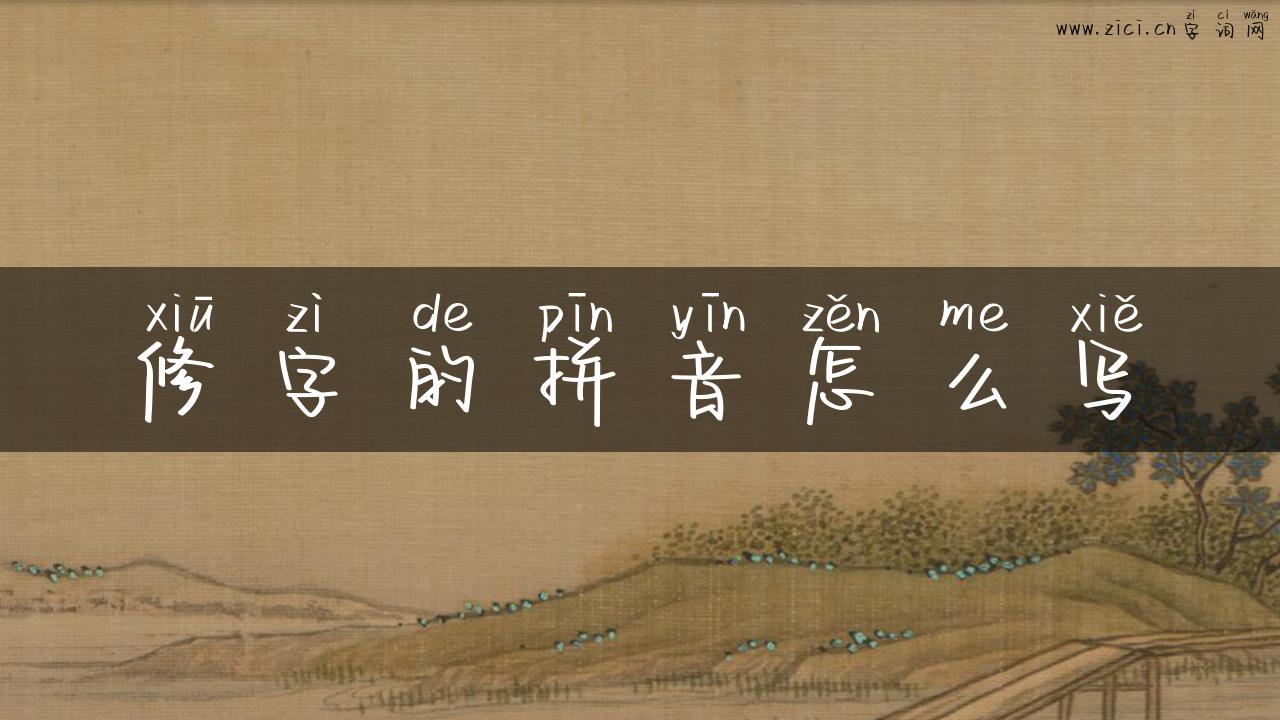 zì cí wǎng
www.zici.cn字词网
xiū zì de pīn yīn zěn me xiě
修字的拼音怎么写